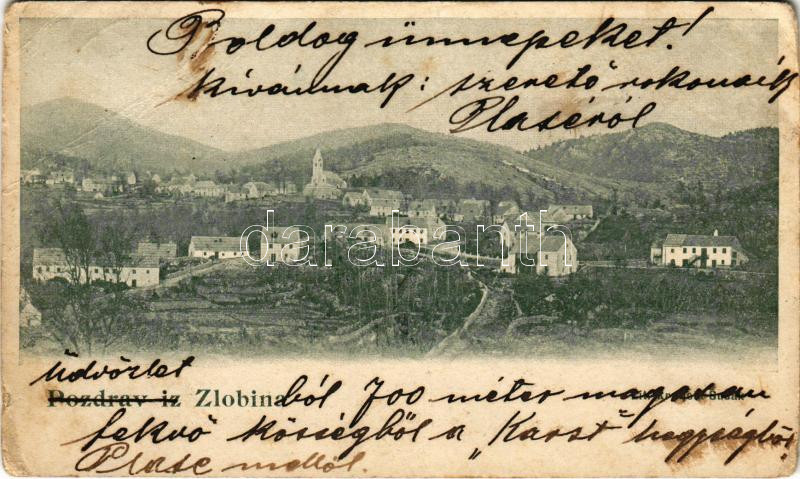 Boldog ünnepeket!
kívánnak: szerető rokonaik
Plaséról
darabanth
üdvözlet
Pozdrav iz Zlobina ból 700 méter magasan
fekvő községből a "Karst" hegységből
Plase mellől.